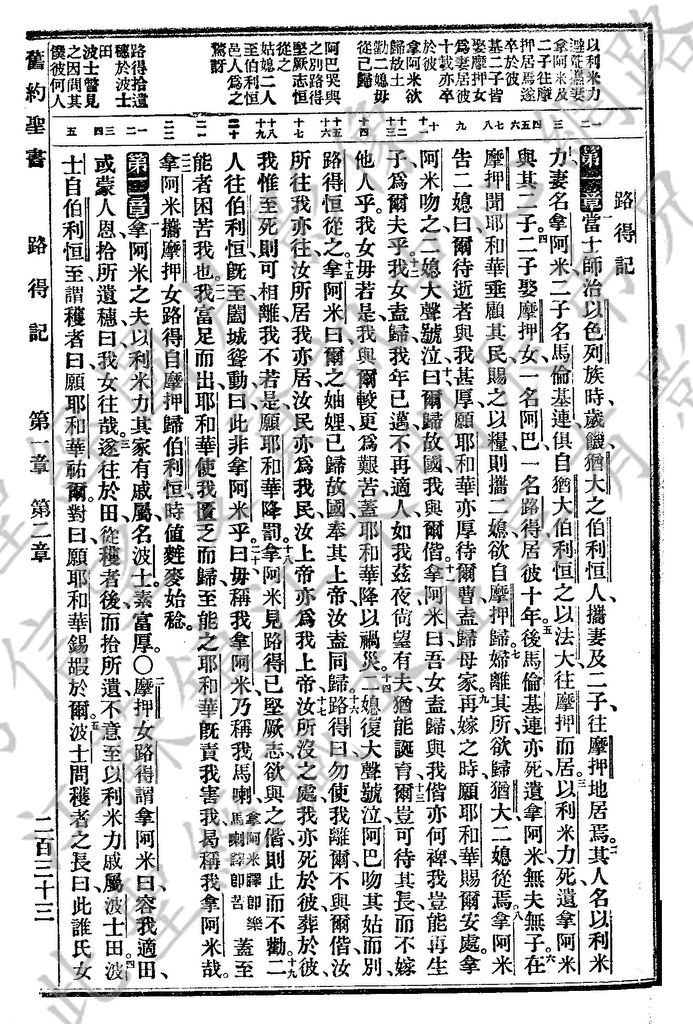 路得記
以利米力
避荒攜妻
拿阿米及
二子往摩
押居焉遂
卒於彼
二子皆
娶摩押女
爲妻居彼
十載亦卒
於彼
拿阿米欲
歸故土
勸二媳毋
從己歸
阿巴哭與
之別路得
堅厥志恒
從之
姑媳二人
至伯利恒
邑人爲之
驚訝
路得拾遺
穗於波士
田
波士瞥見
之因問其
僕彼何人
第一章當士師治以色列族時歲饑猶大之伯利恒人攜妻及二子往摩押地居焉其人名以利米
力妻名拿阿米二子名馬倫基連俱自猶大伯利恒之以法大往摩押而居以利米力死遺拿阿米
與其二子二子娶摩押女一名阿巴一名路得居彼十年後馬倫基連亦死遺拿阿米無夫無子在
摩押聞耶和華垂顧其民賜之以糧則攜二媳欲自摩押歸婦離其所欲歸猶大二媳從焉拿阿米
告二媳曰爾待逝者與我甚厚願耶和華亦厚待爾曹盍歸母家再嫁之時願耶和華賜爾安處拿
阿米吻之二媳大聲號泣曰爾歸故國我與爾偕拿阿米曰吾女盍歸與我偕亦何裨我豈能再生
子爲爾夫乎我女盍歸我年已邁不再適人如我茲夜尙望有夫猶能誕育爾豈可待其長而不嫁
他人乎我女毋若是我與爾較更爲艱苦蓋耶和華降以禍災二媳復大聲號泣阿巴吻其姑而別
路得恒從之拿阿米曰爾之妯娌已歸故國奉其上帝汝盍同歸路得曰勿使我離爾不與爾偕汝
所往我亦往汝所居我亦居汝民亦爲我民汝上帝亦爲我上帝汝所沒之處我亦死於彼葬於彼
我惟至死則可相離我不若是願耶和華降罰拿阿米見路得已堅厥志欲與之偕則止而不勸二
人往伯利恒旣至闔城聳動曰此非拿阿米乎曰毋稱我拿阿米乃稱我馬喇拿阿米譯卽樂馬喇譯卽苦蓋至
能者困苦我也我富足而出耶和華使我匱乏而歸至能之耶和華旣責我害我曷稱我拿阿米哉
拿阿米攜摩押女路得自摩押歸伯利恒時値麰麥始稔
第二章拿阿米之夫以利米力其家有戚屬名波士素富厚〇摩押女路得謂拿阿米曰容我適田
或蒙人恩拾所遺穗曰我女往哉遂往於田從穫者後而拾所遺不意至以利米力戚屬波士田波
士自伯利恒至謂穫者曰願耶和華祐爾對曰願耶和華錫嘏於爾波士問穫者之長曰此誰氏女
舊約聖書 路得記 第一章 第二章 二百三十三